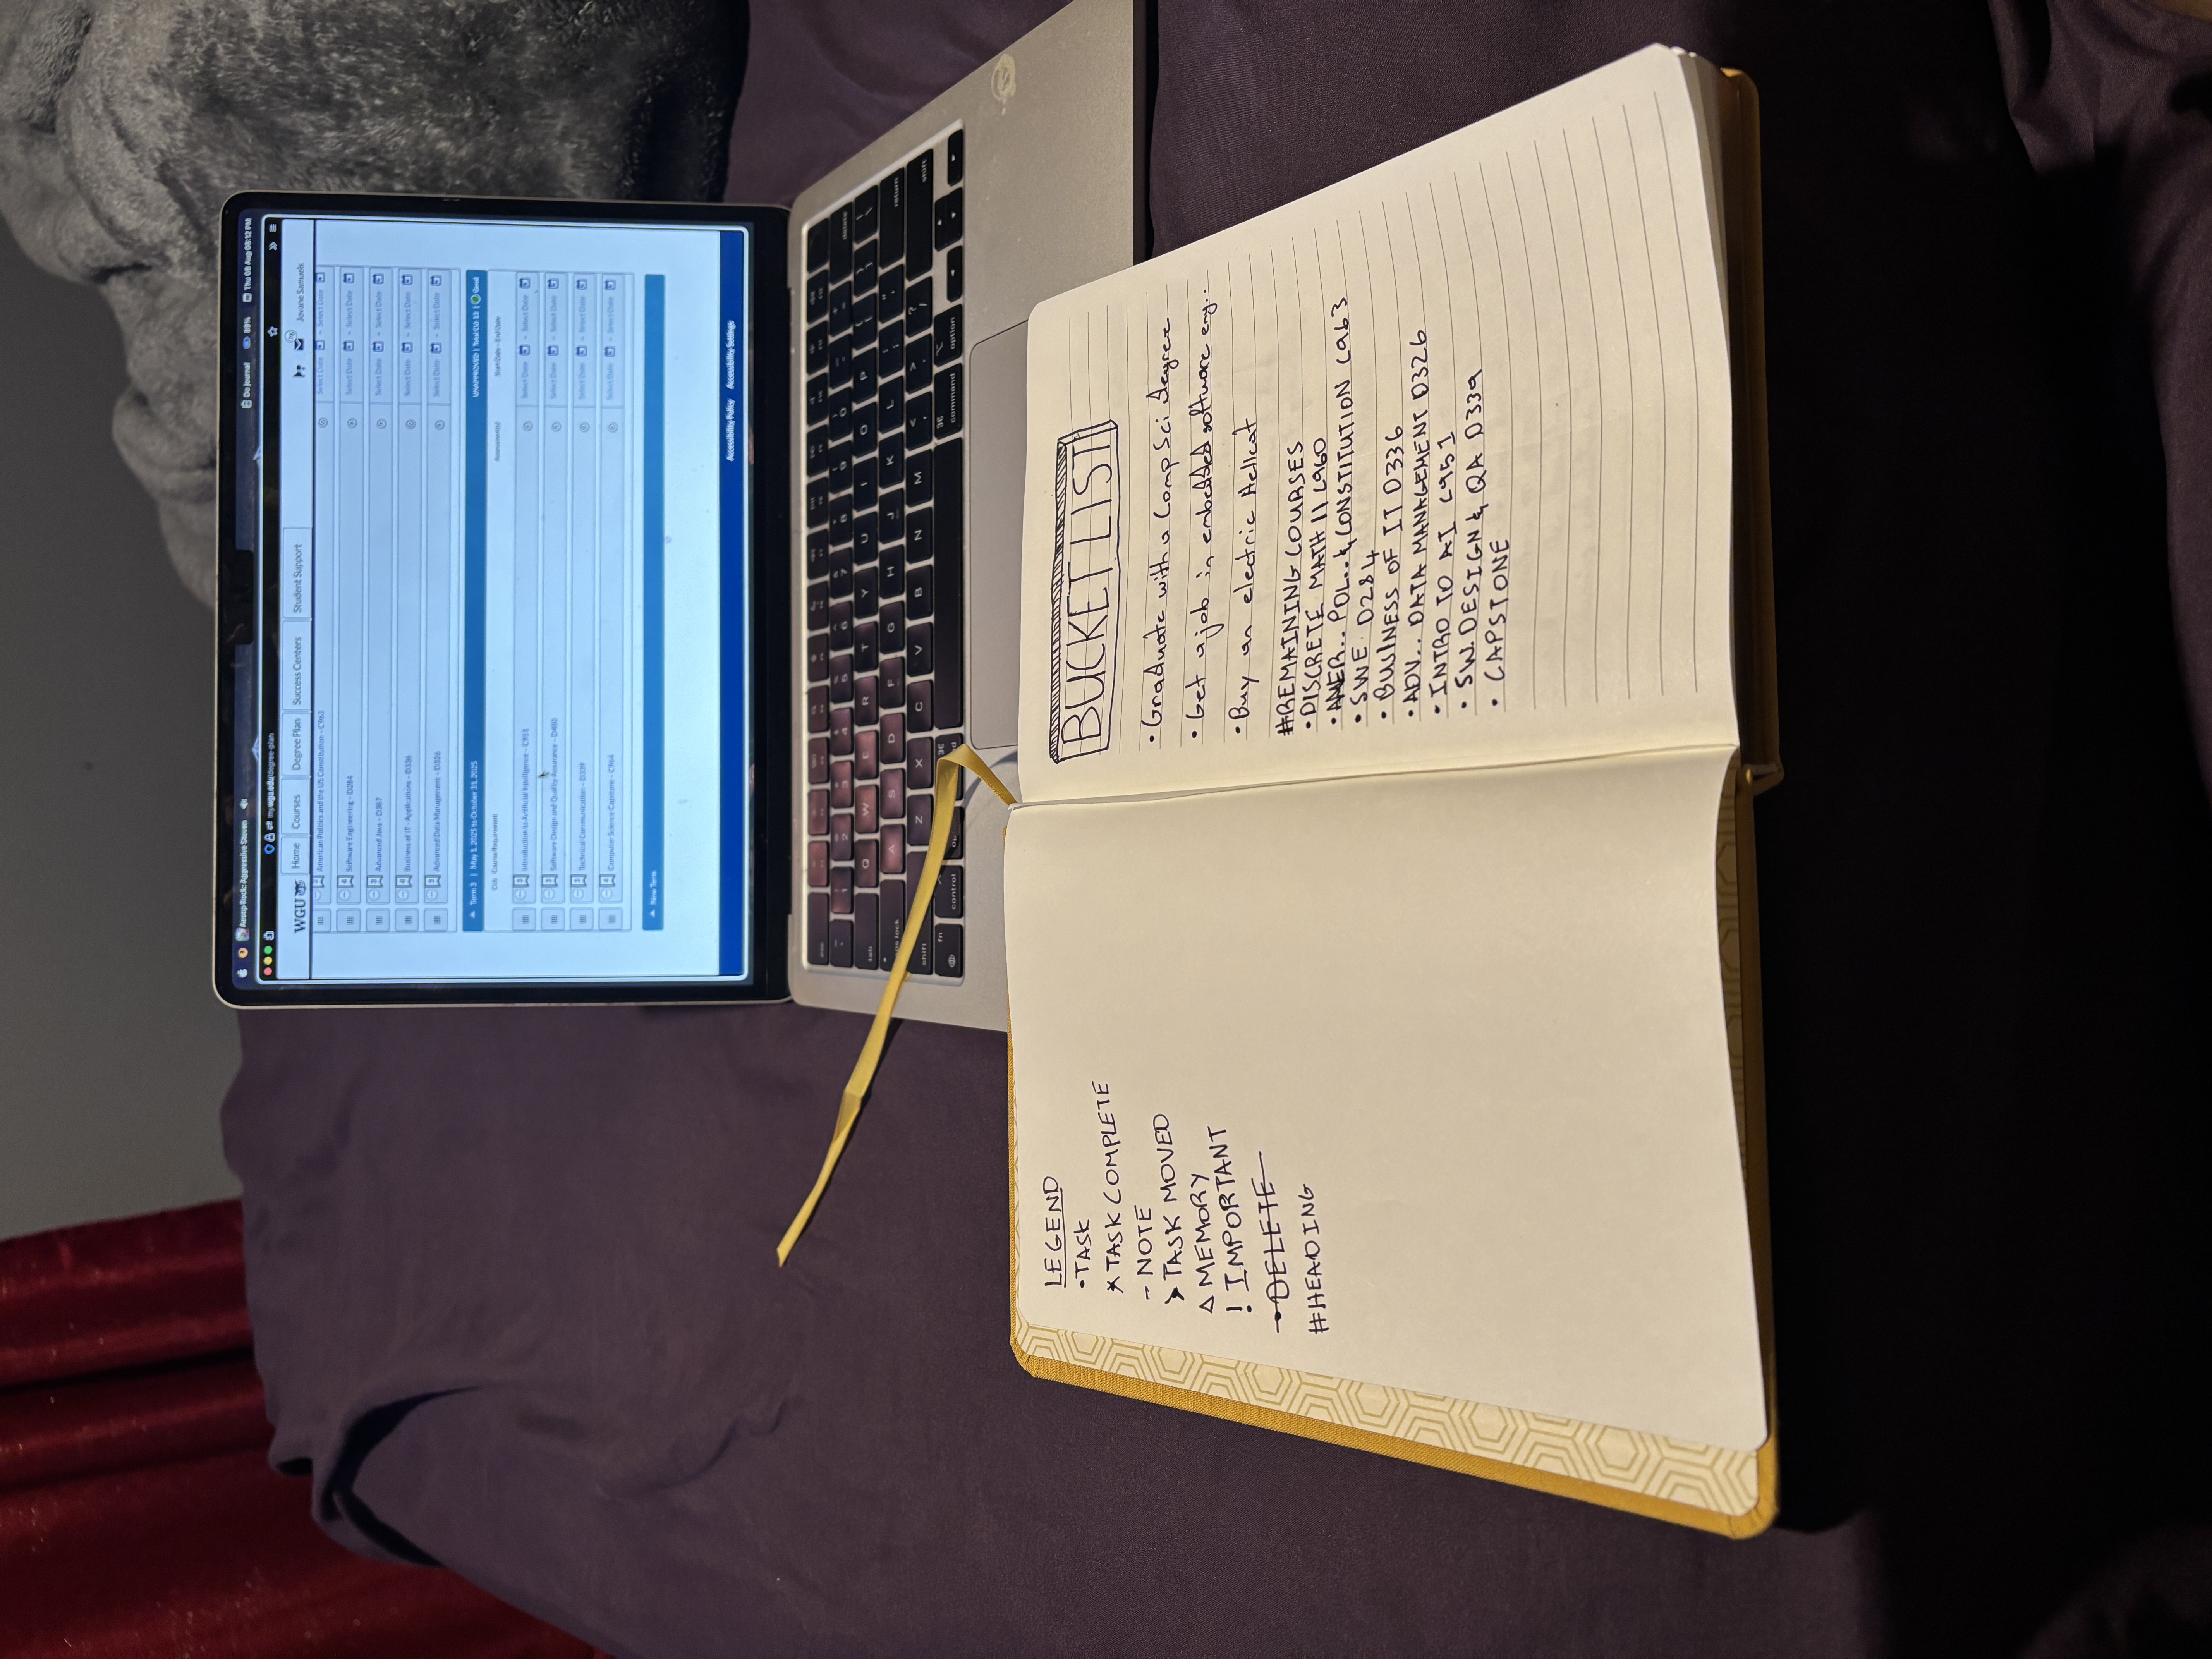 Aesop Rock: Aggressive Steven
Do Journal 89% Thu 08 Aug 08:12 PM
my.wgu.edu/degree-plan
WGU Home Courses Degree Plan Success Centers Student Support Jovane Samuels
American Politics and the US Constitution - C963 Select Date - Select Date
4 Software Engineering - D284 Select Date - Select Date
3 Advanced Java - D387 Select Date - Select Date
4 Business of IT - Applications - D336 Select Date - Select Date
3 Advanced Data Management - D326 Select Date - Select Date
Term 3 | May 1, 2025 to October 31, 2025 UNAPPROVED | Total CU: 13 | Good
CUs Course/Requirement Assessment(s) Start Date - End Date
3 Introduction to Artificial Intelligence - C951 Select Date - Select Date
3 Software Design and Quality Assurance - D480 Select Date - Select Date
3 Technical Communication - D339 Select Date - Select Date
4 Computer Science Capstone - C964 Select Date - Select Date
New Term
Accessibility Policy Accessibility Settings
esc
~ 1 2 3 4 5 6 7 8 9 0 - = delete
tab Q W E R T Y U I O P { [ } ] \
lock A S D F G H J K L ; return
shift Z X C V B N M < , > . ? / shift
fn control ⌘ ⌘ command option
LEGEND
•TASK
×TASK COMPLETE
- NOTE
>TASK MOVED
△ MEMORY
! IMPORTANT
•DELETE
#HEADING
BUCKET LIST
•Graduate with a Comp Sci degree
•Get a job in embedded software eng..
•Buy an electric Hellcat
#REMAINING COURSES
•DISCRETE MATH II C960
•AMER.. POL.. & CONSTITUTION C963
•SWE D284
•BUSINESS OF IT D336
•ADV.. DATA MANAGEMENT D326
•INTRO TO AI C951
•SW. DESIGN & QA D339
•CAPSTONE